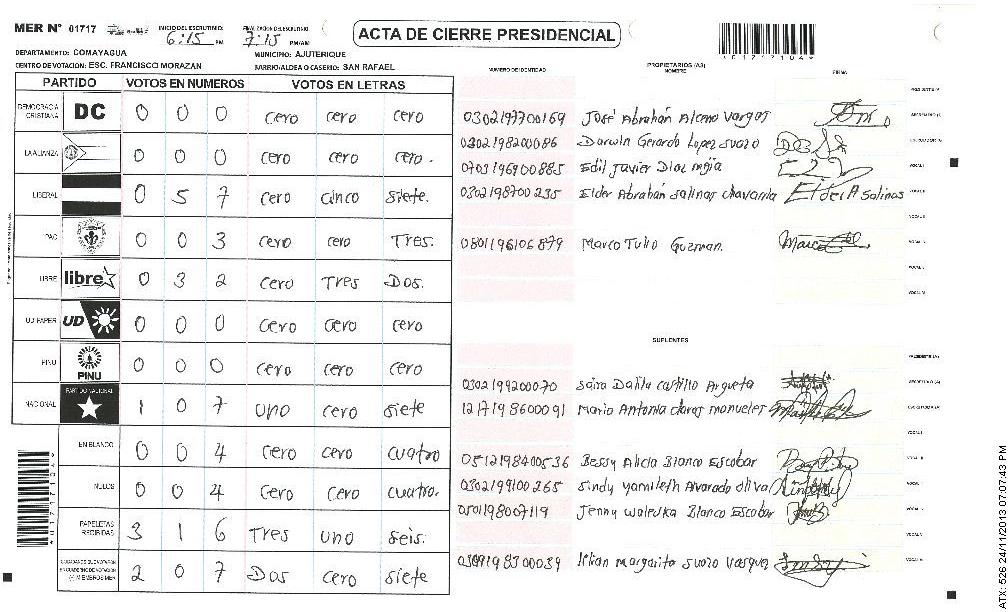 MER Nº 01717
INICIO DEL ESCRUTINIO: 6:15 PM
FINALIZACION DEL ESCRUTINIO: 7:15 PM/AM
ACTA DE CIERRE PRESIDENCIAL
DEPARTAMENTO: COMAYAGUA
MUNICIPIO: AJUTERIQUE
CENTRO DE VOTACION: ESC. FRANCISCO MORAZAN
BARRIO/ALDEA O CASERIO: SAN RAFAEL
PARTIDO VOTOS EN NUMEROS VOTOS EN LETRAS
DEMOCRACIA CRISTIANA DC 0 0 0 cero cero cero
LA ALIANZA 0 0 0 cero cero cero.
LIBERAL 0 5 7 cero cinco siete.
PAC 0 0 3 cero cero Tres.
LIBRE libre 0 3 2 cero Tres Dos.
UD FAPER UD 0 0 0 cero cero cero
PINU PINU 0 0 0 cero cero cero
NACIONAL PARTIDO NACIONAL 1 0 7 uno cero siete
EN BLANCO 0 0 4 cero cero cuatro
NULOS 0 0 4 cero cero cuatro.
PAPELETAS RECIBIDAS 3 1 6 Tres uno seis.
CIUDADANOS QUE VOTARON EN CUADERNO DE VOTACION (+) MIEMBROS MER 2 0 7 Dos cero siete
NUMERO DE IDENTIDAD PROPIETARIOS (AS) NOMBRE FIRMA
PRESIDENTE (A)
0302197700169 José Abrahán Alceno Vargas SECRETARIO (A)
0302198200086 Darwin Gerardo Lopez suazo ESCRUTADOR (A)
0703196900885 Edil Javier Diaz mejia VOCAL I
0302198700235 Elder Abrahán salinas chavarria Elder A Salinas VOCAL II
VOCAL III
0801196106879 Marco Tulio Guzman. Marco VOCAL IV
VOCAL V
VOCAL VI
SUPLENTES
PRESIDENTE (A)
0302199200070 Saira Dalila castillo Argueta SECRETARIO (A)
1217198600091 Mario Antonia claros manueles ESCRUTADOR (A)
VOCAL I
0512198400536 Bessy Alicia Blanco Escobar VOCAL II
0302199100265 Sindy yamileth Alvarado oliva VOCAL III
0501198007119 Jenny waleska Blanco Escobar VOCAL IV
VOCAL V
lilian margarita suazo vasquez VOCAL VI
ATX: 526 24/11/2013 07:07:43 PM